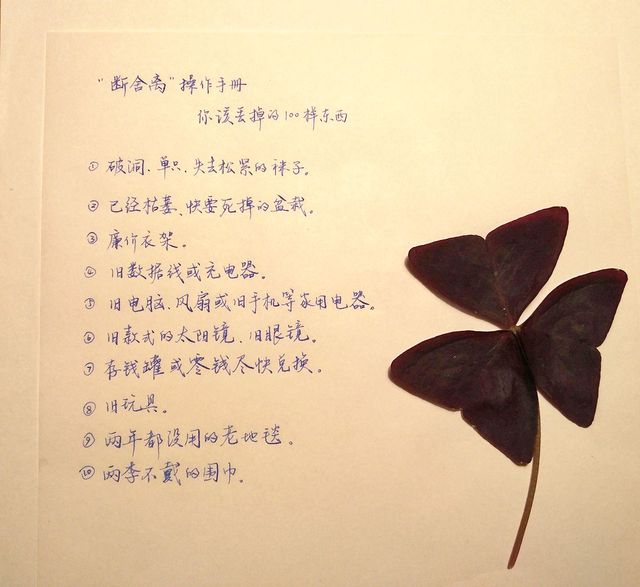 “断舍离”操作手册
你该丢掉的100样东西
① 破洞、单只、失去松紧的袜子。
② 已经枯萎、快要死掉的盆栽。
③ 廉价衣架。
④ 旧数据线或充电器。
⑤ 旧电脑、风扇或旧手机等家用电器。
⑥ 旧款式的太阳镜、旧眼镜。
⑦ 存钱罐或零钱尽快兑换。
⑧ 旧玩具。
⑨ 两年都没用的老地毯。
⑩ 两季不戴的围巾。